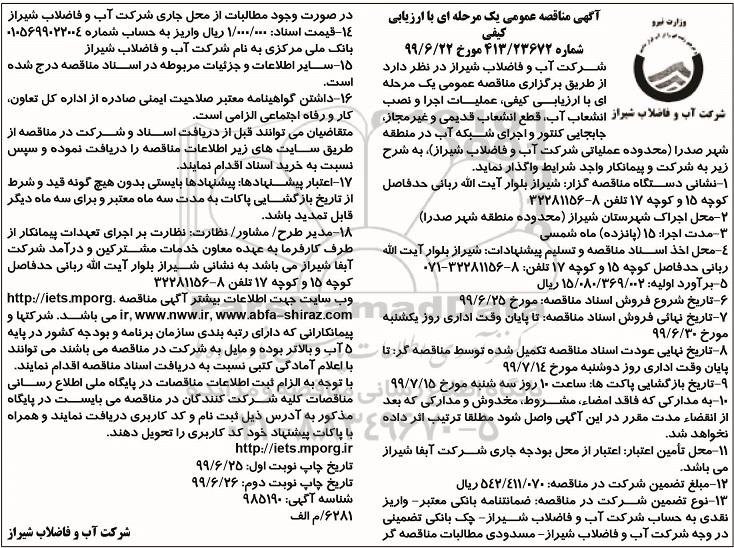 وزارت نیرو
شرکت آب و فاضلاب شیراز
آگهی مناقصه عمومی یک مرحله ای با ارزیابی
کیفی
شماره ۴۱۳/۲۳۶۷۲ مورخ ۹۹/۶/۲۲
شرکت آب و فاضلاب شیراز در نظر دارد
از طریق برگزاری مناقصه عمومی یک مرحله
ای با ارزیابی کیفی، عملیات اجرا و نصب
انشعاب آب، قطع انشعاب قدیمی و غیرمجاز،
جابجایی کنتور و اجرای شبکه آب در منطقه
شهر صدرا (محدوده عملیاتی شرکت آب و فاضلاب شیراز)، به شرح
زیر به شرکت و پیمانکار واجد شرایط واگذار نماید.
۱-نشانی دستگاه مناقصه گزار: شیراز بلوار آیت الله ربانی حدفاصل
کوچه ۱۵ و کوچه ۱۷ تلفن ۸-۳۲۲۸۱۱۵۶
۲-محل اجراک شهرستان شیراز (محدوده منطقه شهر صدرا)
۳-مدت اجرا: ۱۵ (پانزده) ماه شمسی
۴-محل اخذ اسناد مناقصه و تسلیم پیشنهادات: شیراز بلوار آیت الله
ربانی حدفاصل کوچه ۱۵ و کوچه ۱۷ تلفن: ۸-۳۲۲۸۱۱۵۶-۰۷۱
۵-برآورد اولیه: ۱۵/۰۸۰/۳۶۹/۰۰۲ ریال
۶-تاریخ شروع فروش اسناد مناقصه: مورخ ۹۹/۶/۲۵
۷-تاریخ نهائی فروش اسناد مناقصه: تا پایان وقت اداری روز یکشنبه
مورخ ۹۹/۶/۳۰
۸-تاریخ نهایی عودت اسناد مناقصه تکمیل شده توسط مناقصه گر: تا
پایان وقت اداری روز دوشنبه مورخ ۹۹/۷/۱۴
۹-تاریخ بازگشایی پاکت ها: ساعت ۱۰ روز سه شنبه مورخ ۹۹/۷/۱۵
۱۰-به مدارکی که فاقد امضاء، مشروط، مخدوش و مدارکی که بعد
از انقضاء مدت مقرر در این آگهی واصل شود مطلقا ترتیب اثر داده
نخواهد شد.
۱۱-محل تأمین اعتبار: اعتبار از محل بودجه جاری شرکت آبفا شیراز
می باشد.
۱۲-مبلغ تضمین شرکت در مناقصه: ۵۴۲/۴۱۱/۰۷۰ ریال
۱۳-نوع تضمین شرکت در مناقصه: ضمانتنامه بانکی معتبر- واریز
نقدی به حساب شرکت آب و فاضلاب شیراز- چک بانکی تضمینی
در وجه شرکت آب و فاضلاب شیراز- مسدودی مطالبات مناقصه گر
در صورت وجود مطالبات از محل جاری شرکت آب و فاضلاب شیراز
۱۴-قیمت اسناد: ۱/۰۰۰/۰۰۰ ریال واریز به حساب شماره ۰۱۰۵۶۹۹۰۲۲۰۰۴
بانک ملی مرکزی به نام شرکت آب و فاضلاب شیراز
۱۵-سایر اطلاعات و جزئیات مربوطه در اسناد مناقصه درج شده
است.
۱۶-داشتن گواهینامه معتبر صلاحیت ایمنی صادره از اداره کل تعاون،
کار و رفاه اجتماعی الزامی است.
متقاضیان می توانند قبل از دریافت اسناد و شرکت در مناقصه از
طریق سایت های زیر اطلاعات مناقصه را دریافت نموده و سپس
نسبت به خرید اسناد اقدام نمایند.
۱۷-اعتبار پیشنهادها: پیشنهادها بایستی بدون هیچ گونه قید و شرط
از تاریخ بازگشایی پاکات به مدت سه ماه معتبر و برای سه ماه دیگر
قابل تمدید باشد.
۱۸-مدیر طرح/ مشاور/ نظارت: نظارت بر اجرای تعهدات پیمانکار از
طرف کارفرما به عهده معاون خدمات مشترکین و درآمد شرکت
آبفا شیراز می باشد به نشانی شیراز بلوار آیت الله ربانی حدفاصل
کوچه ۱۵ و کوچه ۱۷ تلفن ۸-۳۲۲۸۱۱۵۶
وب سایت جهت اطلاعات بیشتر آگهی مناقصه http://iets.mporg.
ir, www.nww.ir, www.abfa-shiraz.com می باشد. شرکتها و
پیمانکارانی که دارای رتبه بندی سازمان برنامه و بودجه کشور در پایه
۵ آب و بالاتر بوده و مایل به شرکت در مناقصه می باشند می توانند
با اعلام آمادگی کتبی نسبت به دریافت اسناد مناقصه اقدام نمایند.
با توجه به الزام ثبت اطلاعات مناقصات در پایگاه ملی اطلاع رسانی
مناقصات کلیه شرکت کنندگان در مناقصه می بایست در پایگاه
مذکور به آدرس ذیل ثبت نام و کد کاربری دریافت نمایند و همراه
با پاکات پیشنهاد خود کد کاربری را تحویل دهند.
http://iets.mporg.ir
تاریخ چاپ نوبت اول: ۹۹/۶/۲۵
تاریخ چاپ نوبت دوم: ۹۹/۶/۲۶
شناسه آگهی: ۹۸۵۱۹۰
۶۲۸۱/م الف
شرکت آب و فاضلاب شیراز
۰۲۱-۸۸۳۴۹۶۷۰-۵